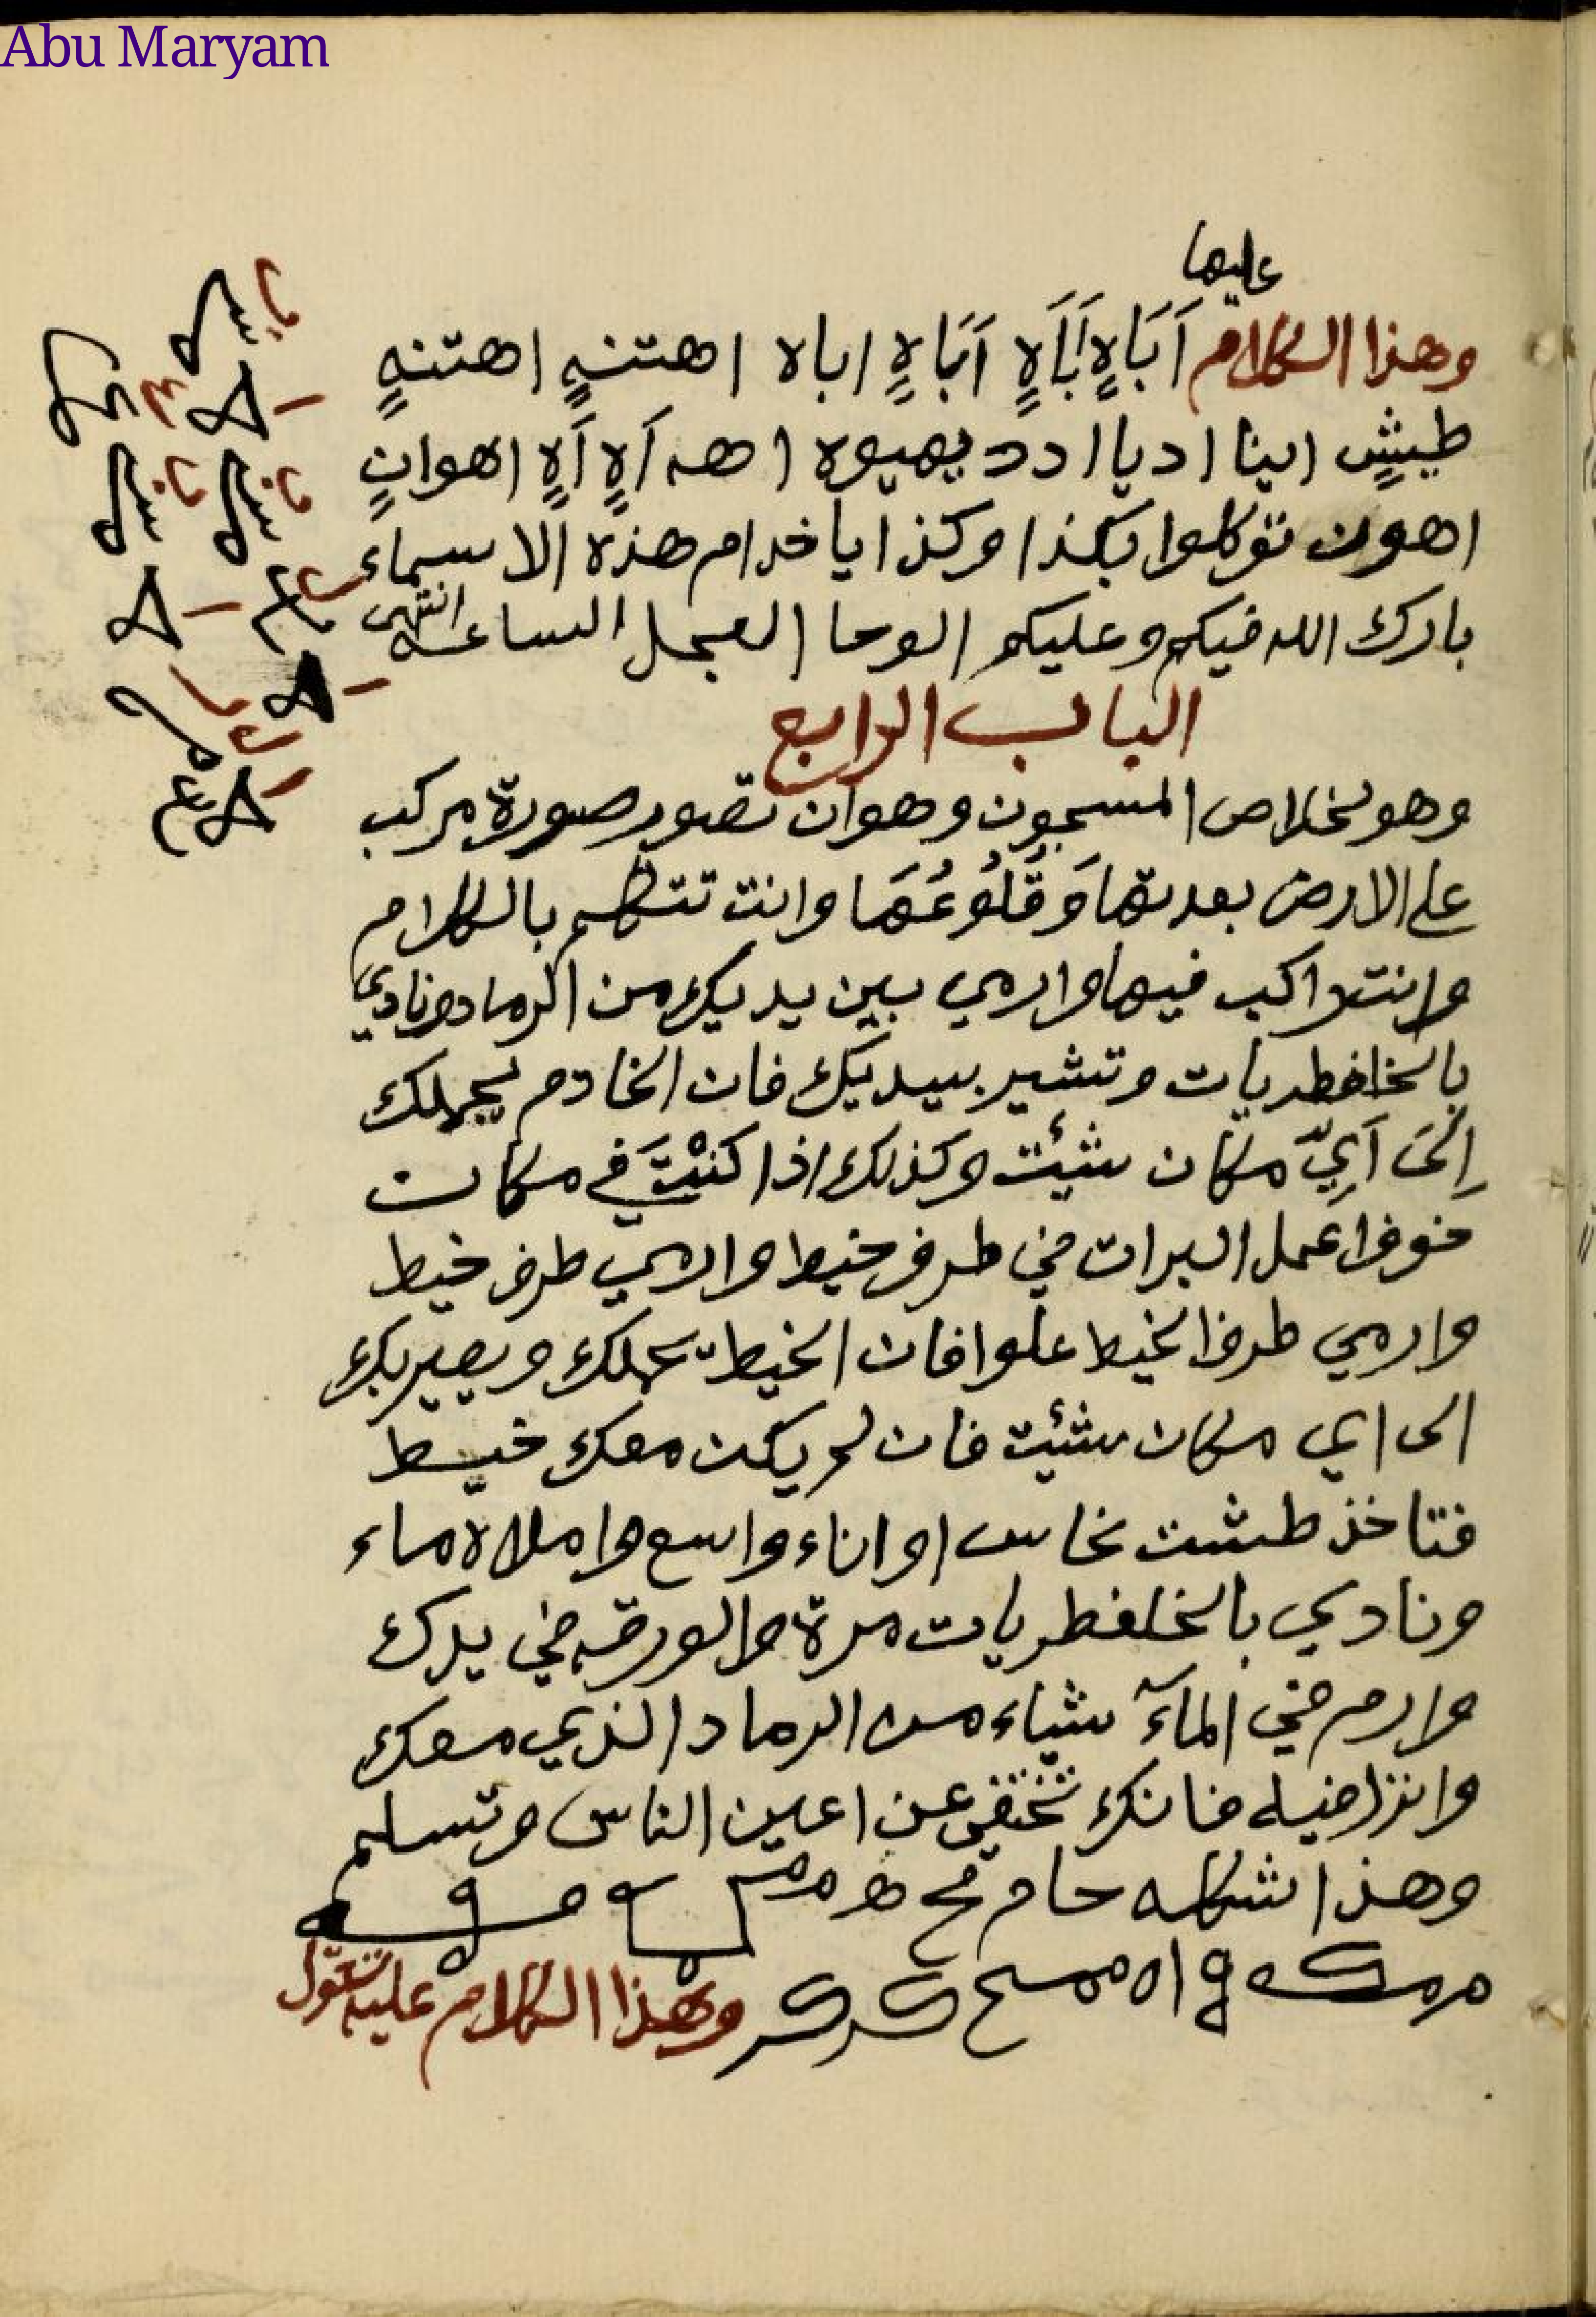 Abu Maryam
عليها
وهذا الكلام اَبَاهٍ اَبَاهٍ اَبَاهٍ اباه اهتنهٍ اهتنهٍ
طيشٍ اينا اديا ادد يهيوه اهه اَهٍ اَهٍ اهوانٍ
اهون توكلوا بكذا وكذا يا خدام هذه الاسماء
بارك الله فيكم وعليكم الوحا العجل الساعه انتهى
الباب الرابع
وهو لخلاص المسجون وهو ان تصور صورة مركب
على الارض بعدتها وَقُلُوعُهَا وانت تتكلم بالكلام
وانت راكب فيها وارمي بين يديك من الرماد ونادي
بالخلفطريات وتشير بيديك فان الخادم يحملك
اِلَى اَيِّ مكان شئت وكذلك اذا كنْتَ في مكان
خوف اعمل البرات في طرف خيط وارمي طرف خيط
وارمي طرف الخيط علوا فان الخيط يحملك ويصير بك
الى اي مكان شئت فان لم يكن معك خيط
فتاخذ طشت نحاس او اناء واسع واملاه ماء
ونادي بالخلفطريات مرة والورقه في يدك
وارم في المآء شياء من الرماد الذي معك
وانزل فيه فانك تختفى عن اعين الناس وتسلم
وهذا شكله
وهذا الكلام عليه تقول